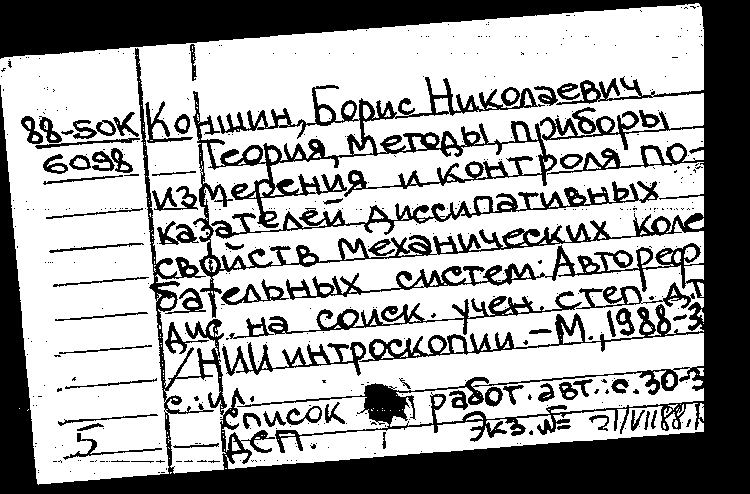 88-50К Коншин, Борис Николаевич.
6098 Теория, методы, приборы
измерения и контроля по-
казателей диссипативных
свойств механических коле
бательных систем: Автореф
дис. на соиск. учен. степ. д.т
/НИИ интроскопии.-М.,1988.-3
с.:ил.
список работ.авт.:с.30-3
5 ДСП. Экз.№ 21/VII88.